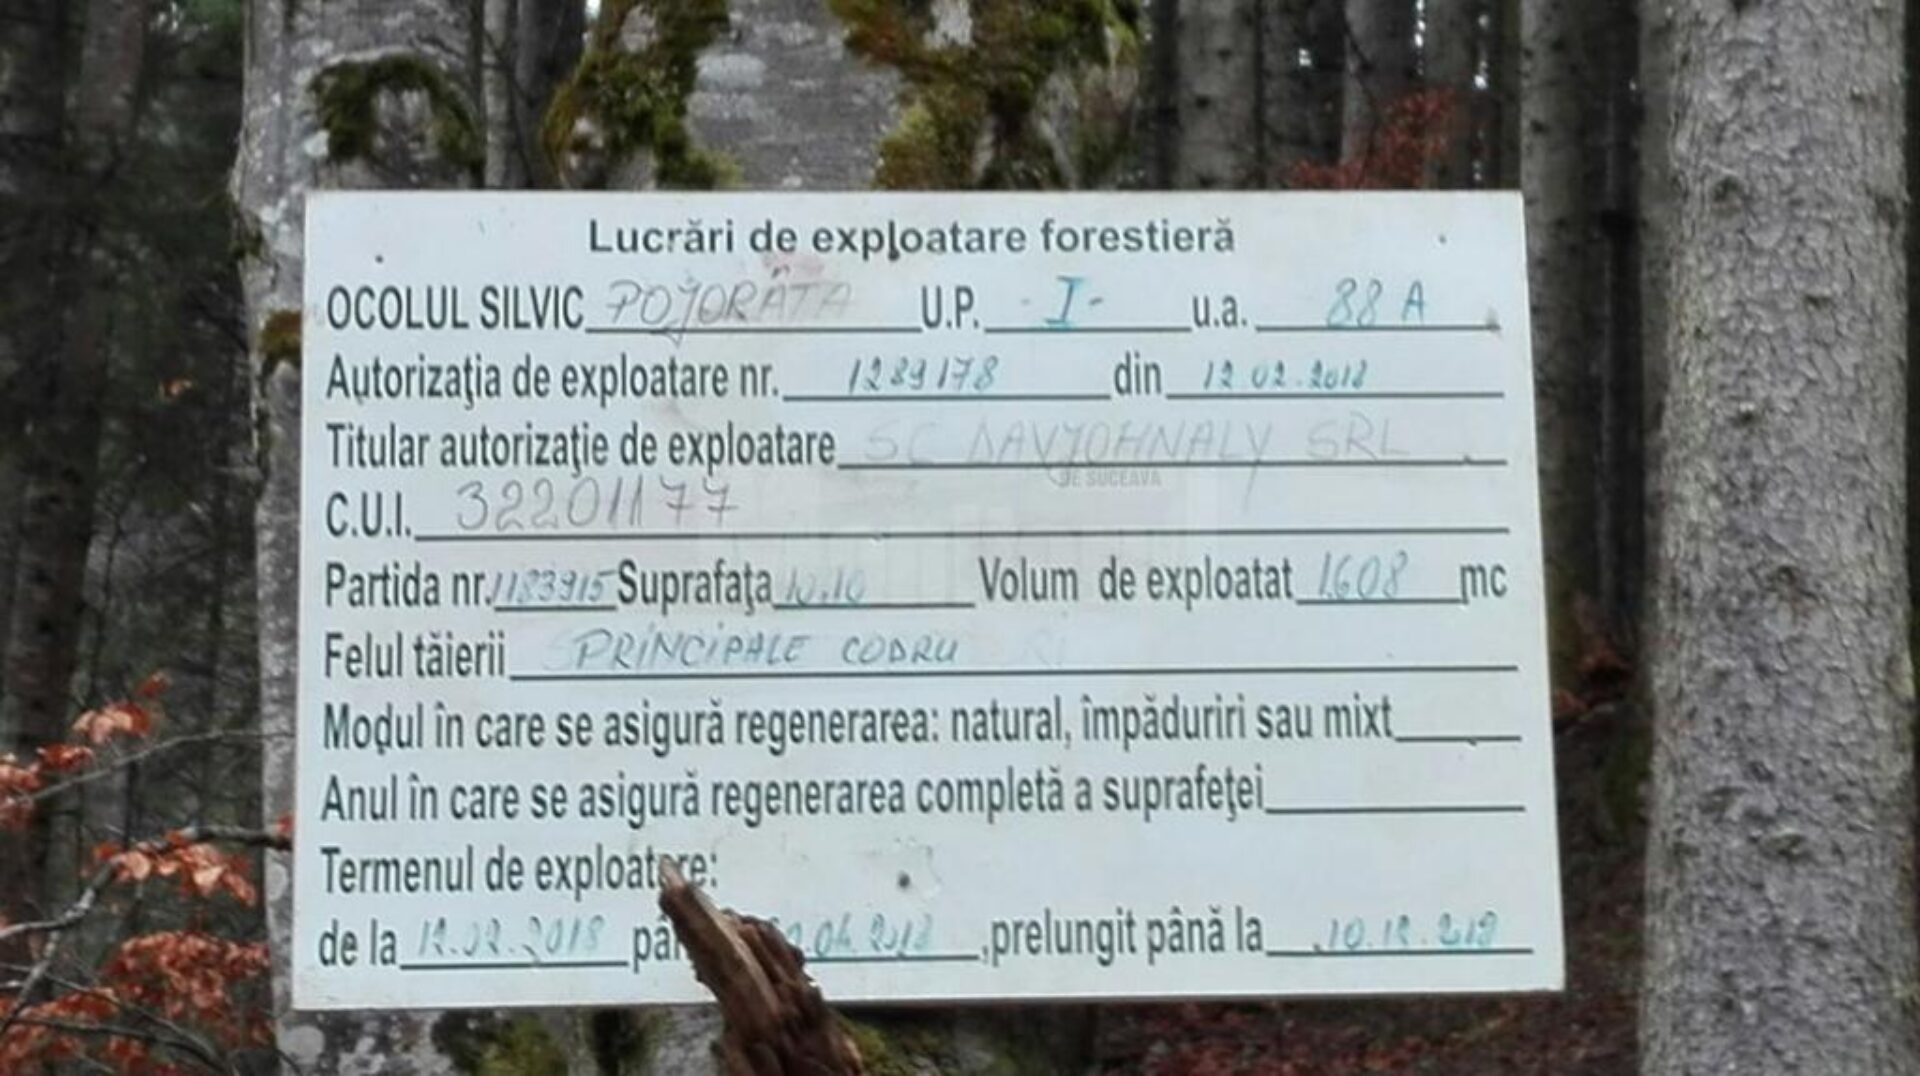 Lucrări de exploatare forestieră
OCOLUL SILVIC POJORÂTA U.P. -I- u.a. 88 A
Autorizaţia de exploatare nr. 1289178 din 12 02.2018
Titular autorizaţie de exploatare SC DAVJOHNALY SRL
DE SUCEAVA
C.U.I. 32201177
Partida nr. 1183915 Suprafaţa 10.10 Volum de exploatat 1608 mc
Felul tăierii PRINCIPALE CODRU
Modul în care se asigură regenerarea: natural, împăduriri sau mixt
Anul în care se asigură regenerarea completă a suprafeţei
Termenul de exploatare:
de la 12.02.2018 .04.2018 ,prelungit până la 10.12.2018